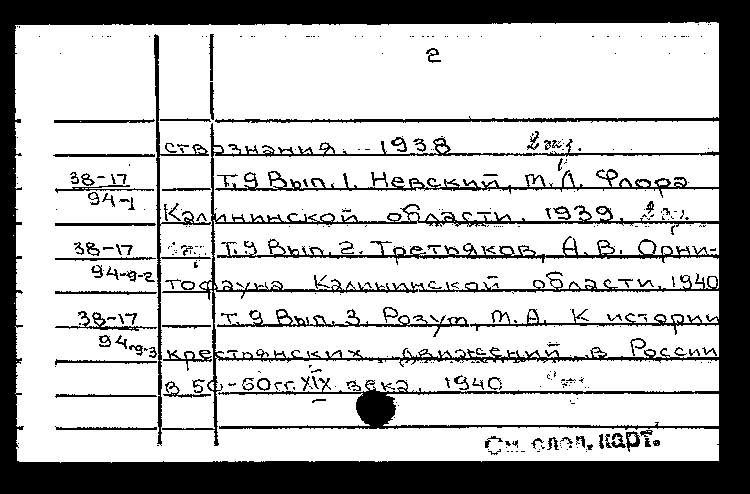 2
ствознания. - 1938 2 экз.
38-17 Т.9 Вып.1. Невский, М.Л. Флора
94-1
Калининской области. 1939. 2 экз.
38-17 Т.9 Вып.2. Третьяков, А.В. Орни-
94-9-2 тофауна Калининской области. 1940
38-17 Т.9 Вып.3. Розум, М.А. К истории
94-9-3 крестьянских движений в России
в 50-60 гг. XIX века. 1940
См. след. карт.